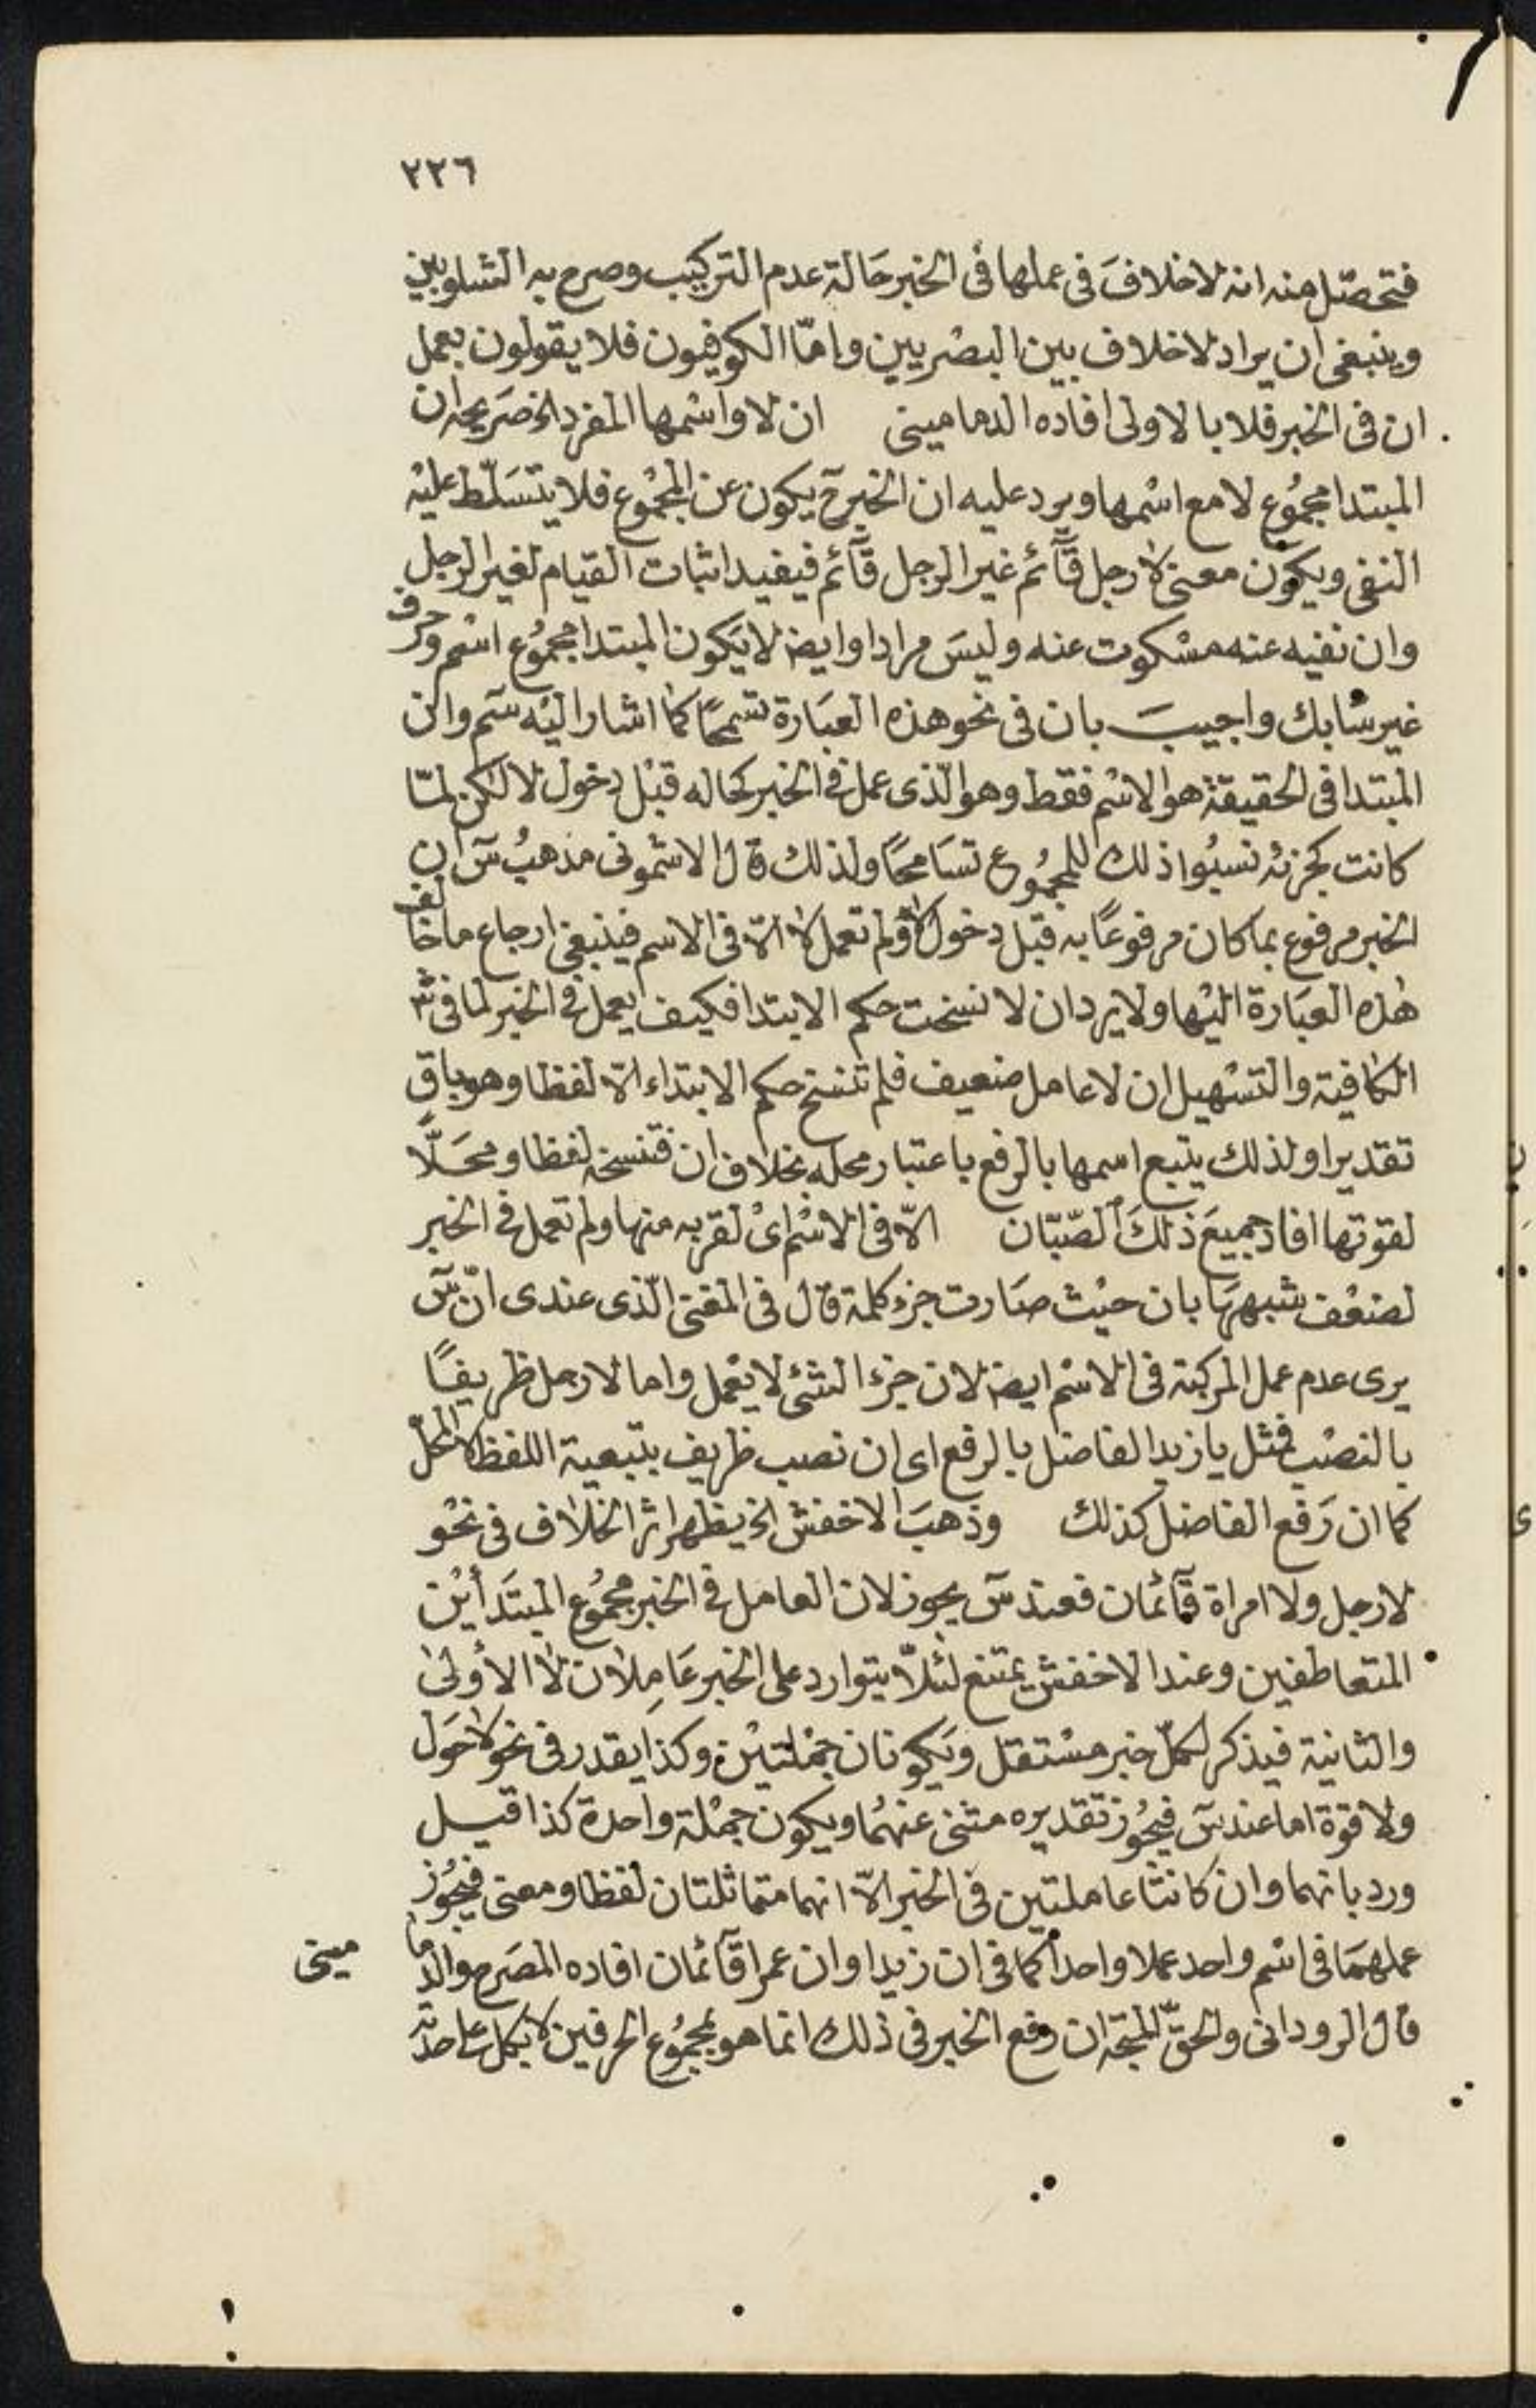 ٢٢٦
فتحصّل منه انه لا خلافَ فى عملها فى الخبر حَالة عدم التركيب وصرح به الشلوبين
وينبغى ان يراد لا خلاف بين البصْريين وامّا الكوفيون فلا يقولون بعمل
ان فى الخبر فلا بالاولى افاده الدمامينى ان لا واسْمها المفرد الخ صَريحه ان
المبتدا مجمُوع لا مع اسْمها ويرد عليه ان الخبر ح يكون عن المجْمُوع فلا يتسَلّط عليْه
النفى ويكون معنى لا رجل قآئم غير الرجل قآئم فيفيد اثبات القيام لغير الرجل
وان نفيه عنه مسْكوت عنه وليسَ مرادا وايضا لا يَكون المبتدا مجمُوع اسْم وحرف
غير سْابك واجيبَ بان فى نحو هذه العبَارة تسَمحًا كما اشار اليْه سَم وان
المبْتدا فى الحقيقة هو الاسْم فقط وهو الّذى عمل فى الخبر كحاله قبْل دخول لا لكن لمّا
كانت كجزئه نسبُوا ذلك للمجمُوع تسَامحًا ولذلك قال الاشمونى مذهبُ سَ ان
الخبر مرفوع بما كان مرفوعًا به قبل دخول لا ولم تعمل لا الّا فى الاسم فينبغى ارجاع ما خالف
هٰذه العبَارة اليْها ولا يرد ان لا نسخت حكم الابتدا فكيف يعمل فى الخبر لما فى شَر
الكافية والتسْهيل ان لا عامل ضعيف فلم تنسَخ حكم الابتداء الّا لفظا وهو باق
تقديرا ولذلك يتبع اسمها بالرفع باعتبار محله بخلاف ان فتنسخه لفظا ومحَلًّا
لقوتها افاد جميعَ ذلكَ الصّبّان الّا فى الاسْم اىْ لقربه منها ولم تعمل فى الخبر
لضعْف شبههَا بان حيْث صَارت جزء كلمة قال فى المغنى الّذى عندى انّ سَ
يرى عدم عمل المركبة فى الاسْم ايضا لان جزء الشئ لا يعْمل واما لا رجل ظريفًا
بالنصْب فمثل يا زيد الفاضل بالرفع اى ان نصب ظريف بتبعية اللفظ لا المحلّ
كما ان رَفع الفاضل كذلك وذهبَ الاخفش الخ يظهر اثر الخلاف فى نحْو
لا رجل ولا امراة قآئمان فعند سَ يجوز لان العامل فى الخبر مجمُوع المبتَدأيْن
المتعاطفين وعند الاخفش يمتنع لئلّا يتوارد على الخبر عَامِلان لا الأولى
والثانية فيذكر لكلّ خبر مسْتقل ويَكونان جمْلتيْن وكذا يقدر فى نحو لا حَول
ولا قوة اما عند سَ فيجُوز تقديره مثنى عنهُما ويكون جمْلة واحدة كذا قيل
ورد بانهما وان كانتا عاملتين فى الخبر الّا انهما متماثلتان لفظا ومعنى فيجُوز
عملهمَا فى اسْم واحد عملا واحدا كما فى ان زيدا وان عمرا قآئمان افاده المصَرح والدمامينى
قال الرودانى والحقّ المتجه ان رفع الخبر فى ذلك انما هو بمجمُوع الحرفين لا بكل على حدته